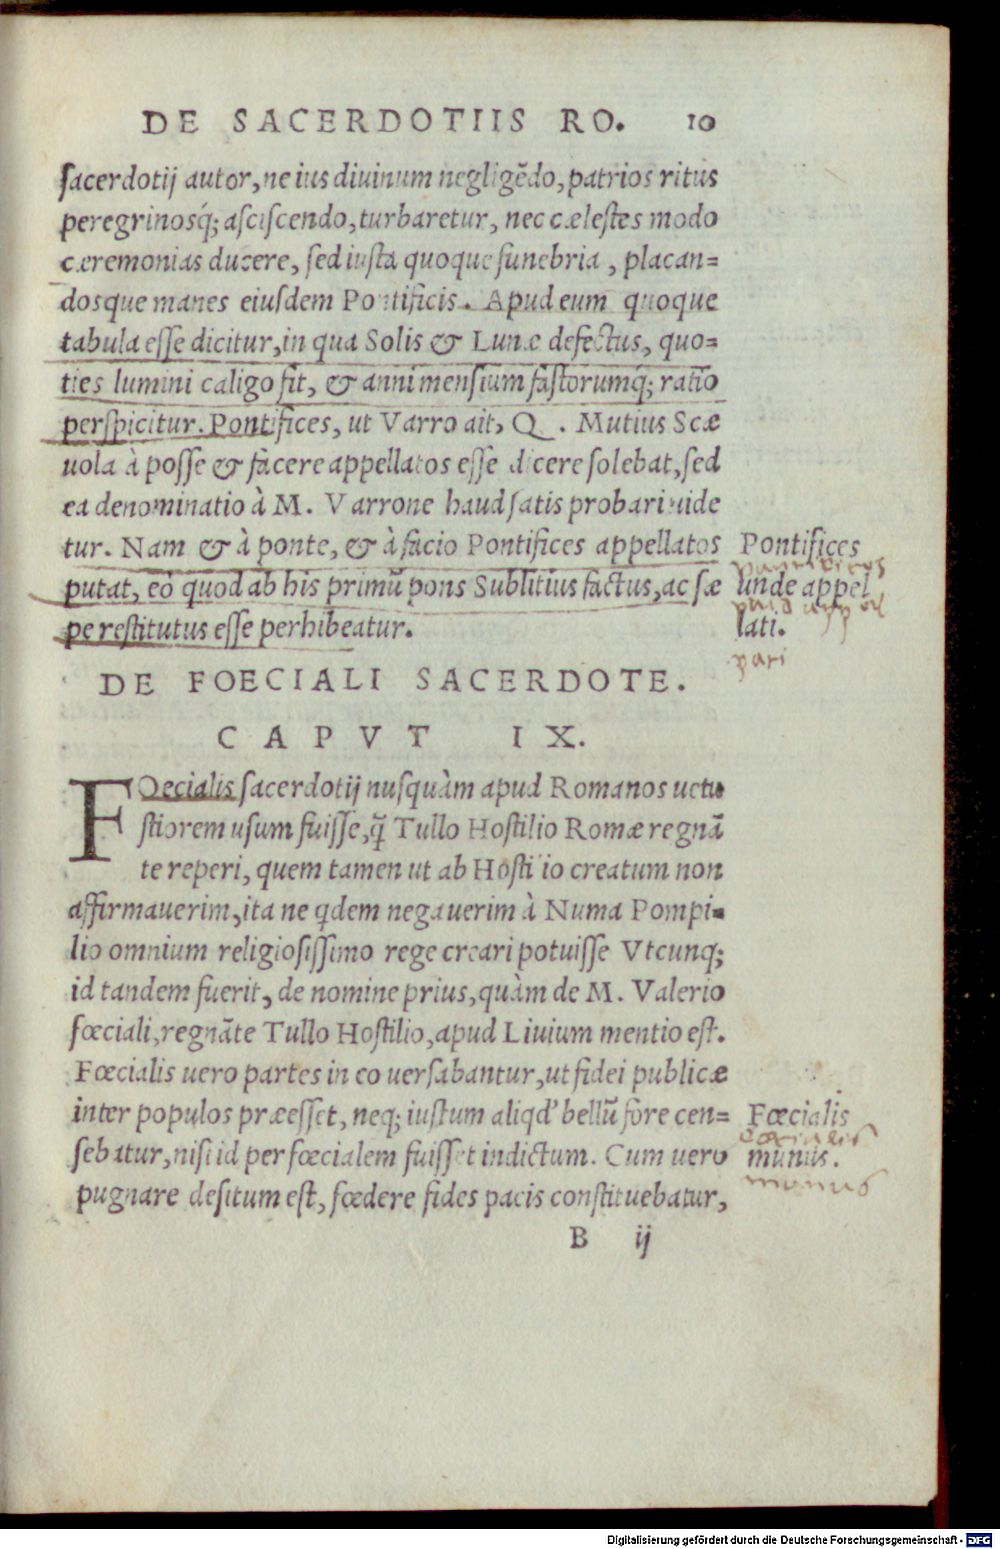 DE SACERDOTIIS RO. 10
sacerdotij autor, ne ius diuinum negligēdo, patrios ritus
peregrinosq́; asciscendo, turbaretur, nec cælestes modo
cæremonias ducere, sed iusta quoque funebria, placan=
dosque manes eiusdem Pontificis. Apud eum quoque
tabula esse dicitur, in qua Solis & Lunæ defectus, quo=
ties lumini caligo fit, & anni mensium fastorumq́; ratio
perspicitur. Pontifices, ut Varro ait, Q. Mutius Scæ
uola à posse & facere appellatos esse dicere solebat, sed
ea denominatio à M. Varrone haud satis probari uide
tur. Nam & à ponte, & à facio Pontifices appellatos
putat, eò quod ab his primū pons Sublitius factus, ac sæ
pe restitutus esse perhibeatur.
Pontifices
unde appel
lati.
DE FOECIALI SACERDOTE.
CAPVT IX.
FOecialis sacerdotij nusquàm apud Romanos uetu
stiorem usum fuisse, q̃ Tullo Hostilio Romæ regnā
te reperi, quem tamen ut ab Hostilio creatum non
affirmauerim, ita ne qdem negauerim à Numa Pompi=
lio omnium religiosissimo rege creari potuisse Vtcunq;
id tandem fuerit, de nomine prius, quàm de M. Valerio
fœciali, regnāte Tullo Hostilio, apud Liuium mentio est.
Fœcialis uero partes in eo uersabantur, ut fidei publicæ
inter populos præesset, neq; iustum aliqd' bellū fore cen=
sebatur, nisi id per fœcialem fuisset indictum. Cum uero
pugnare desitum est, fœdere fides pacis constituebatur,
Fœcialis
munus.
munus
B ij
Digitalisierung gefördert durch die Deutsche Forschungsgemeinschaft - DFG